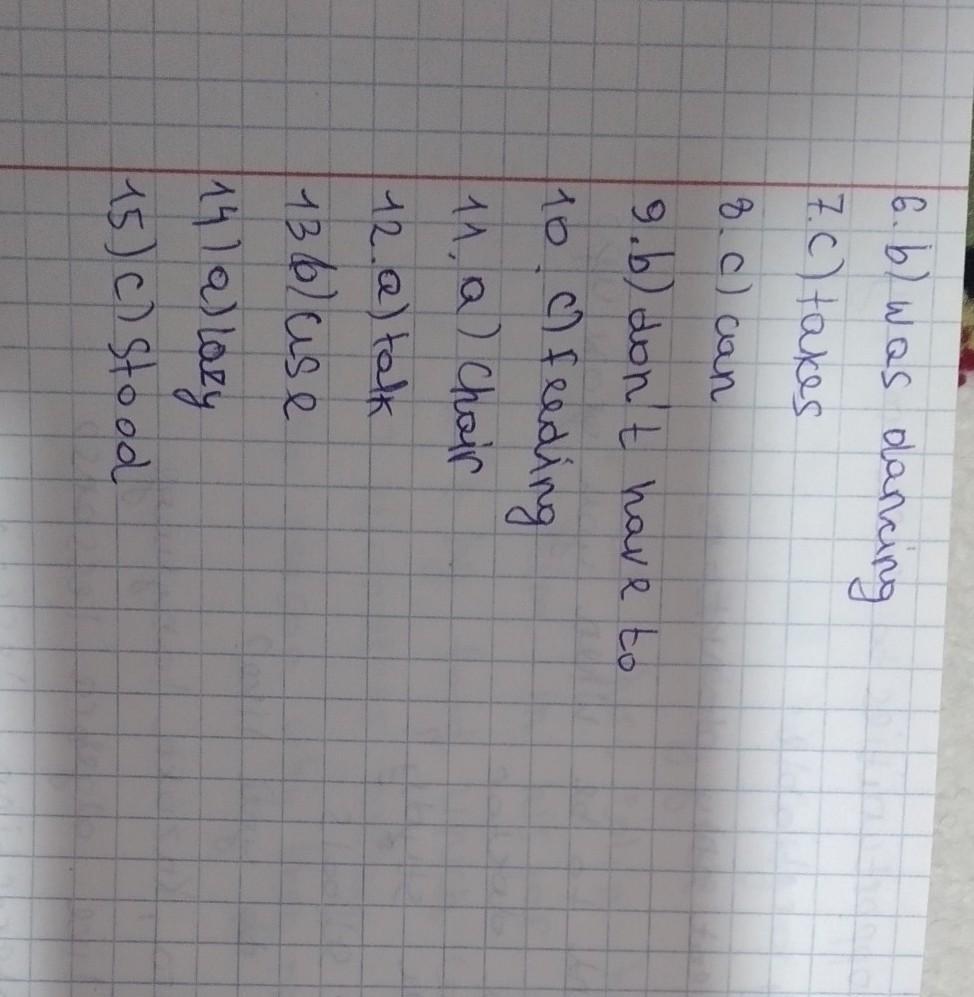 6. b) was dancing
7. c) takes
8. c) can
9. b) don't have to
10. c) feeding
11. a) chair
12. a) talk
13 b) use
14) a) lazy
15) c) stood